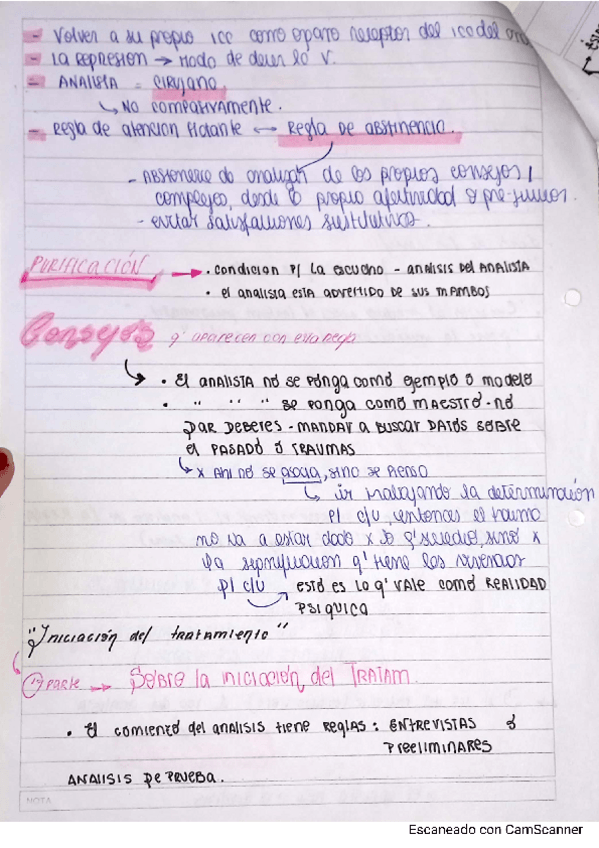 - Volver a su propio icc como organo receptor del icc del
- La represion → Modo de decir lo V.
- ANALISTA = CIRUJANO.
↳ No compativamente.
- Regla de atencion flotante ↔ REGLA DE ABSTINENCIA.
- Abstenerse de analizar de los propios consejos /
complejos, desde la propia afectividad o pre-juicios.
- evitar satisfacciones sustitutivas.
PURIFICACIÓN → • CONDICION P/ LA ESCUCHA - ANALISIS DEL ANALISTA
• el analista ESTA ADVERTIDO DE SUS MAMBOS
Consejos q' aparecen con esta regla
↳ • El ANALISTA NO SE PONGA COMO EJEMPLO O MODELO
• " " " SE PONGA COMO MAESTRO - NO
DAR DEBERES - MANDAR A BUSCAR DATOS SOBRE
el PASADO O TRAUMAS
↳ x Ahi no se asocia, sino se piensa
↳ ir trabajando la determinación
p/ c/u, entonces el trauma
no va a estar dado x lo q' sucedió, sino x
la significacion q' tiene las vivencias
p/ c/u esto es lo q' VALE como REALIDAD
PSIQUICA
"Iniciación del tratamiento"
1º parte → Sobre la iniciación del TRATAM.
• El comienzo del analisis tiene REGLAS: ENTREVISTAS ó
PREELIMINARES
ANALISIS DE PRUEBA.
NOTA
Escaneado con CamScanner